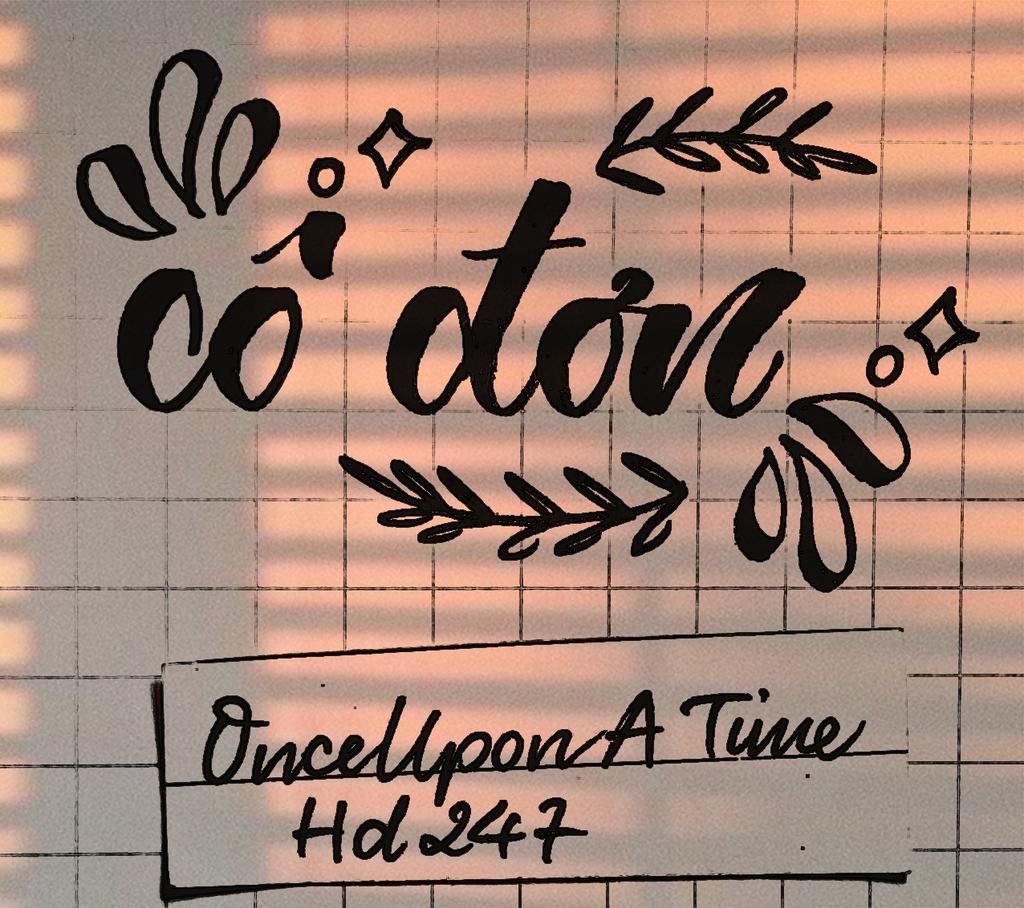 cô đơn
OnceUpon A Time
Hd 247